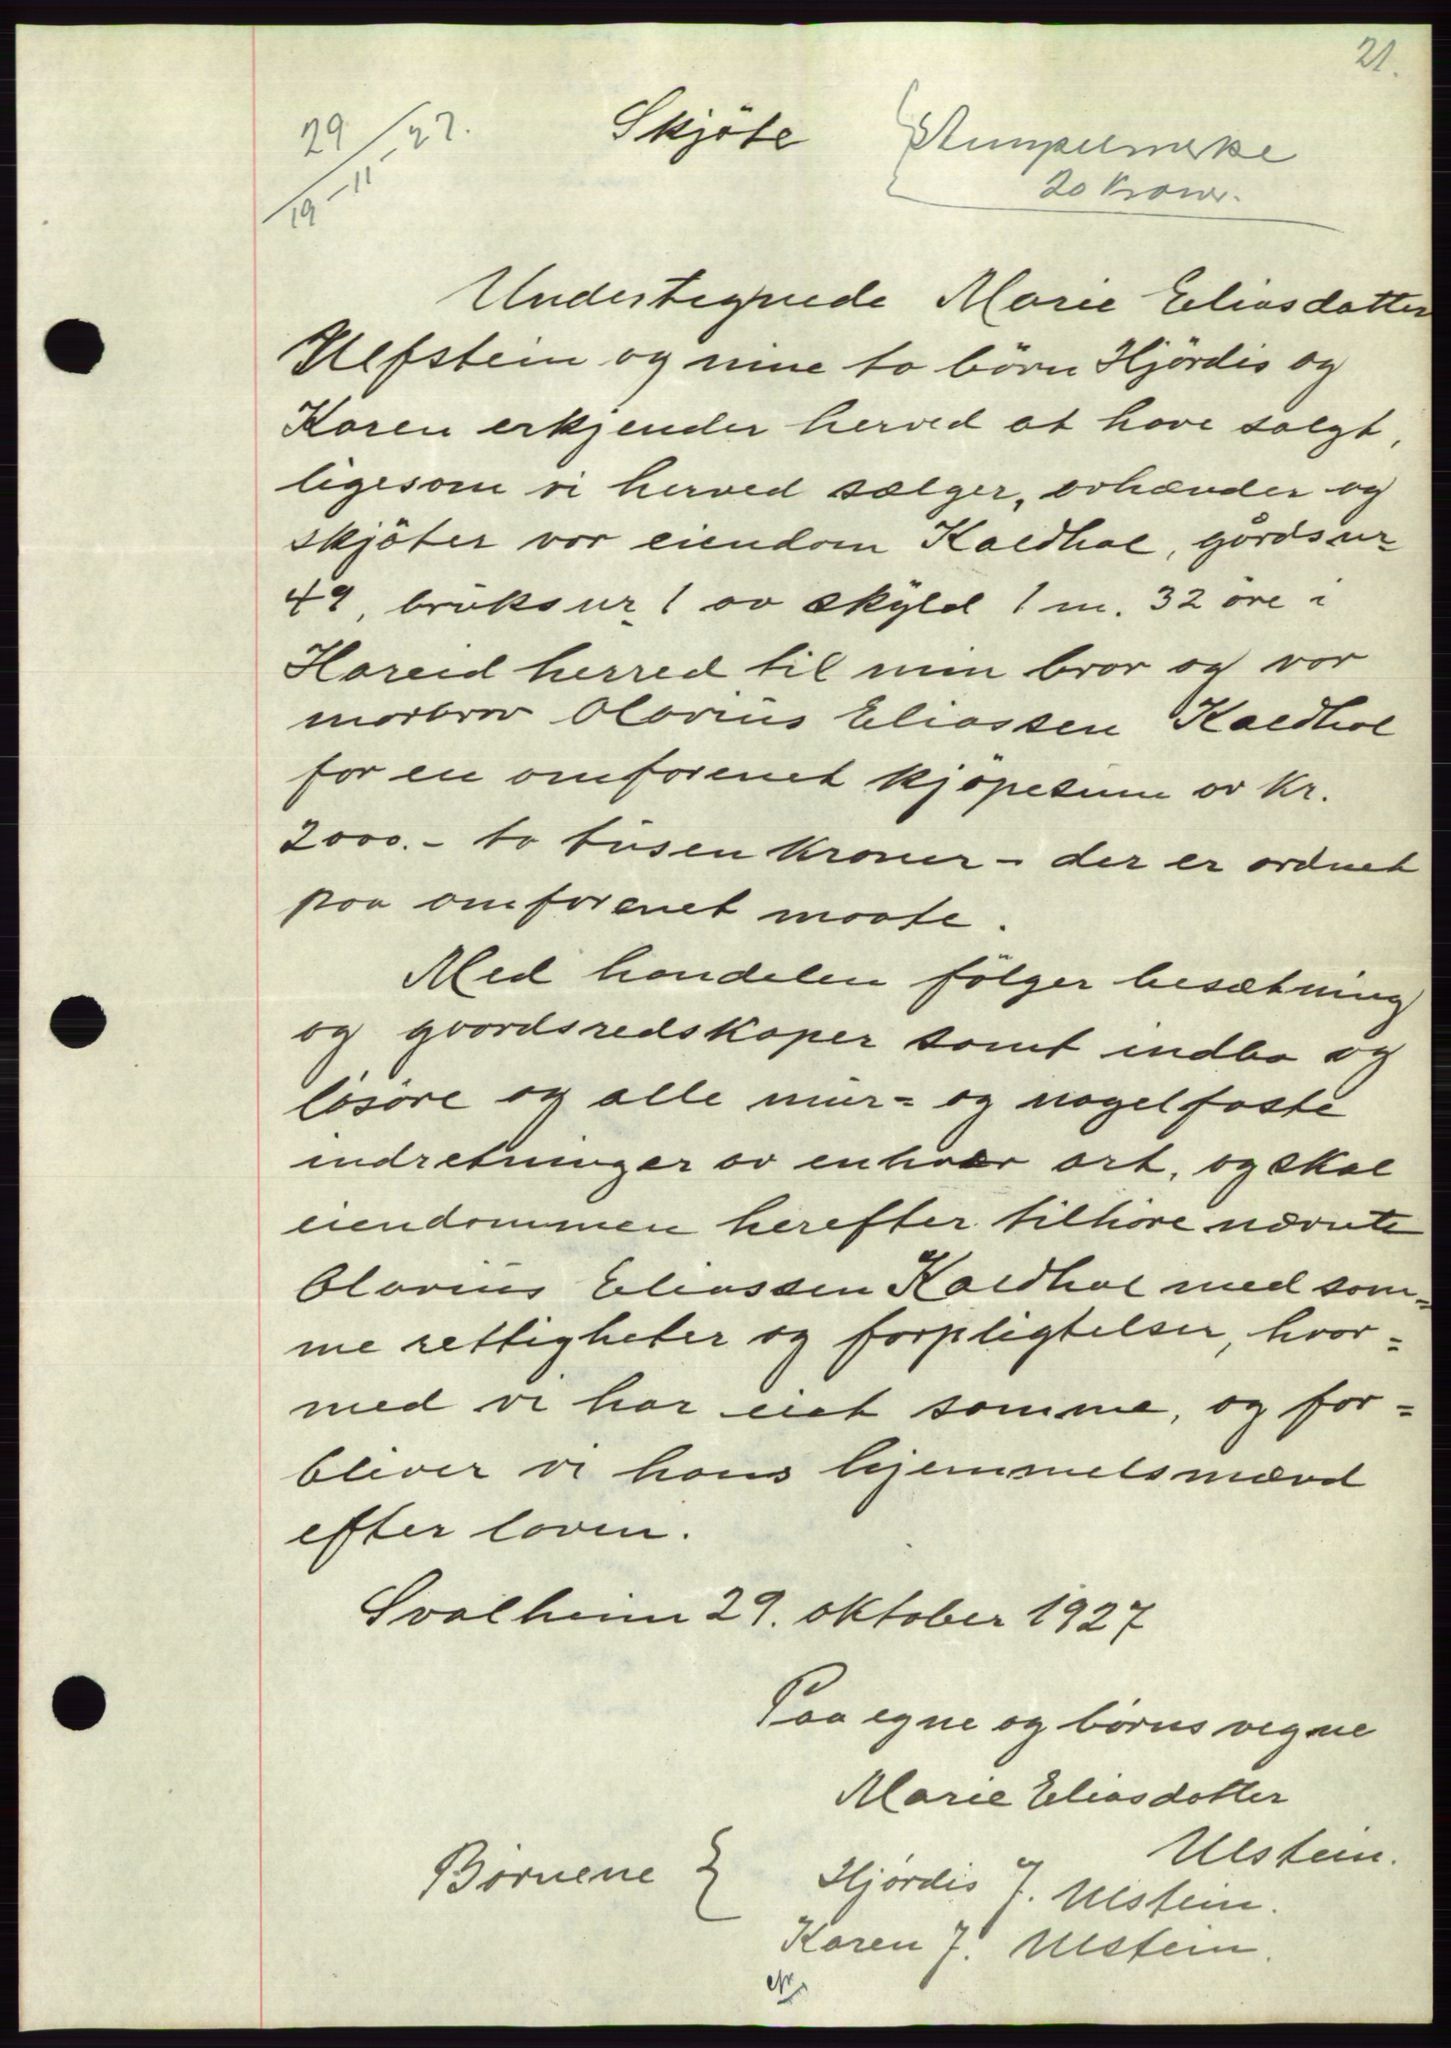 21.
29/19-11-27.
Skjöte
Stempelmerke
20 kroner.
Undertegnede Marie Eliasdatter
Ulfstein og mine to börn Hjördis og
Karen erkjender herved at have solgt,
ligesom vi herved sælger, avhænder og
skjöter vor eiendom Kaldhol, gårdsnr
49, bruksnr 1 av skyld 1 m. 32 öre i
Hareid herred til min bror og vor
morbror Olavius Eliassen Kaldhol
for en omforenet kjöpesum av kr.
2000.- to tusen kroner - der er ordnet
paa omforenet maate.
Med handelen fölger besætning
og gaardsredskaper samt indbo og
lösöre og alle mur= og nagelfaste
indretninger av enhver art, og skal
eiendommen herefter tilhöre nævnte
Olavius Eliassen Kaldhol med sam=
me rettigheter og forpligtelser, hvor=
med vi har eiet samme, og for=
bliver vi hans hjemmelsmænd
efter loven.
Svalheim 29. oktober 1927
Paa egne og börns vegne
Marie Eliasdatter
Ulstein.
Börnene { Hjördis J. Ulstein.
Karen J. Ulstein.